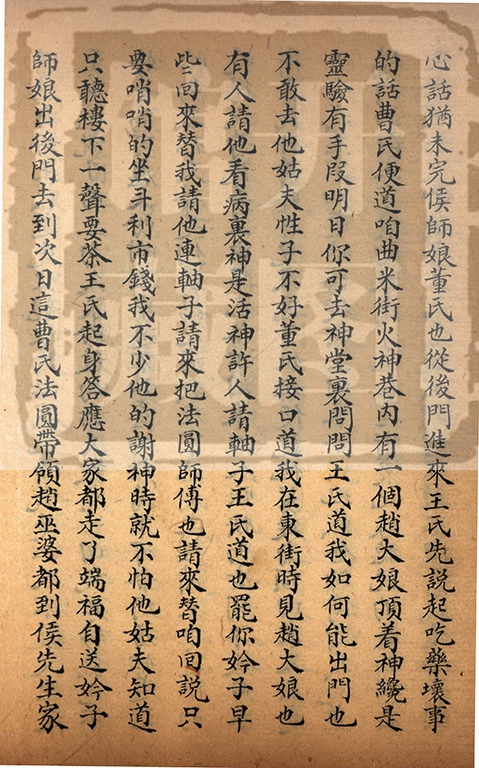 心話猶未完侯師娘董氏也從後門進來王氏先説起吃藥壞事
的話曹氏便道咱曲米街火神巷内有一個趙大娘頂着神纔是
靈驗有手段明日你可去神堂裏問問王氏道我如何能出門也
不敢去他姑夫性子不好董氏接口道我在東街時見趙大娘也
有人請他看病裏神是活神許人請軸子王氏道也罷你妗子早
些回來替我請他連軸子請來把法圓師傅也請來替咱回説只
要哨哨的坐斗利市錢我不少他的謝神時就不怕他姑夫知道
只聽樓下一聲要茶王氏起身答應大家都走了端福自送妗子
師娘出後門去到次日這曹氏法圓帶領趙巫婆都到侯先生家